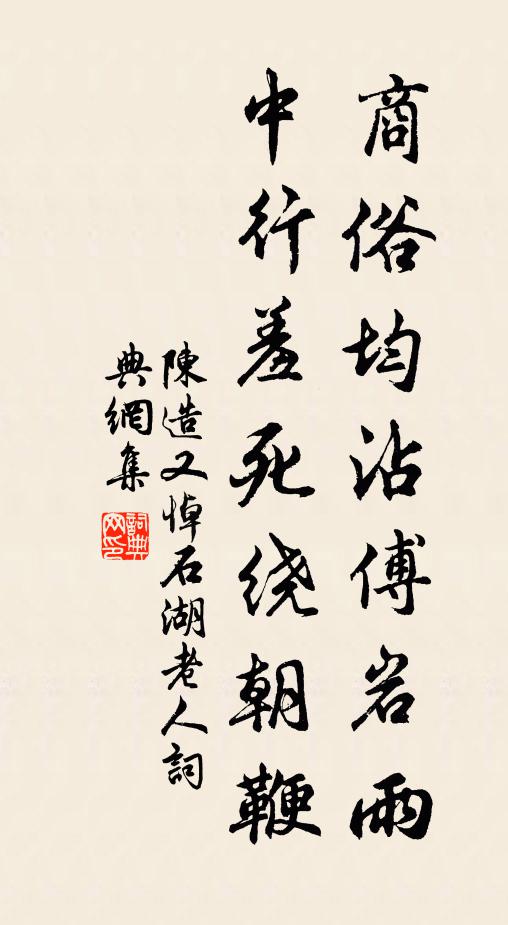 商俗均沾傅岩雨
中行羞死绕朝鞭
陳造又悼石湖老人詞
典網集
詞典
网印